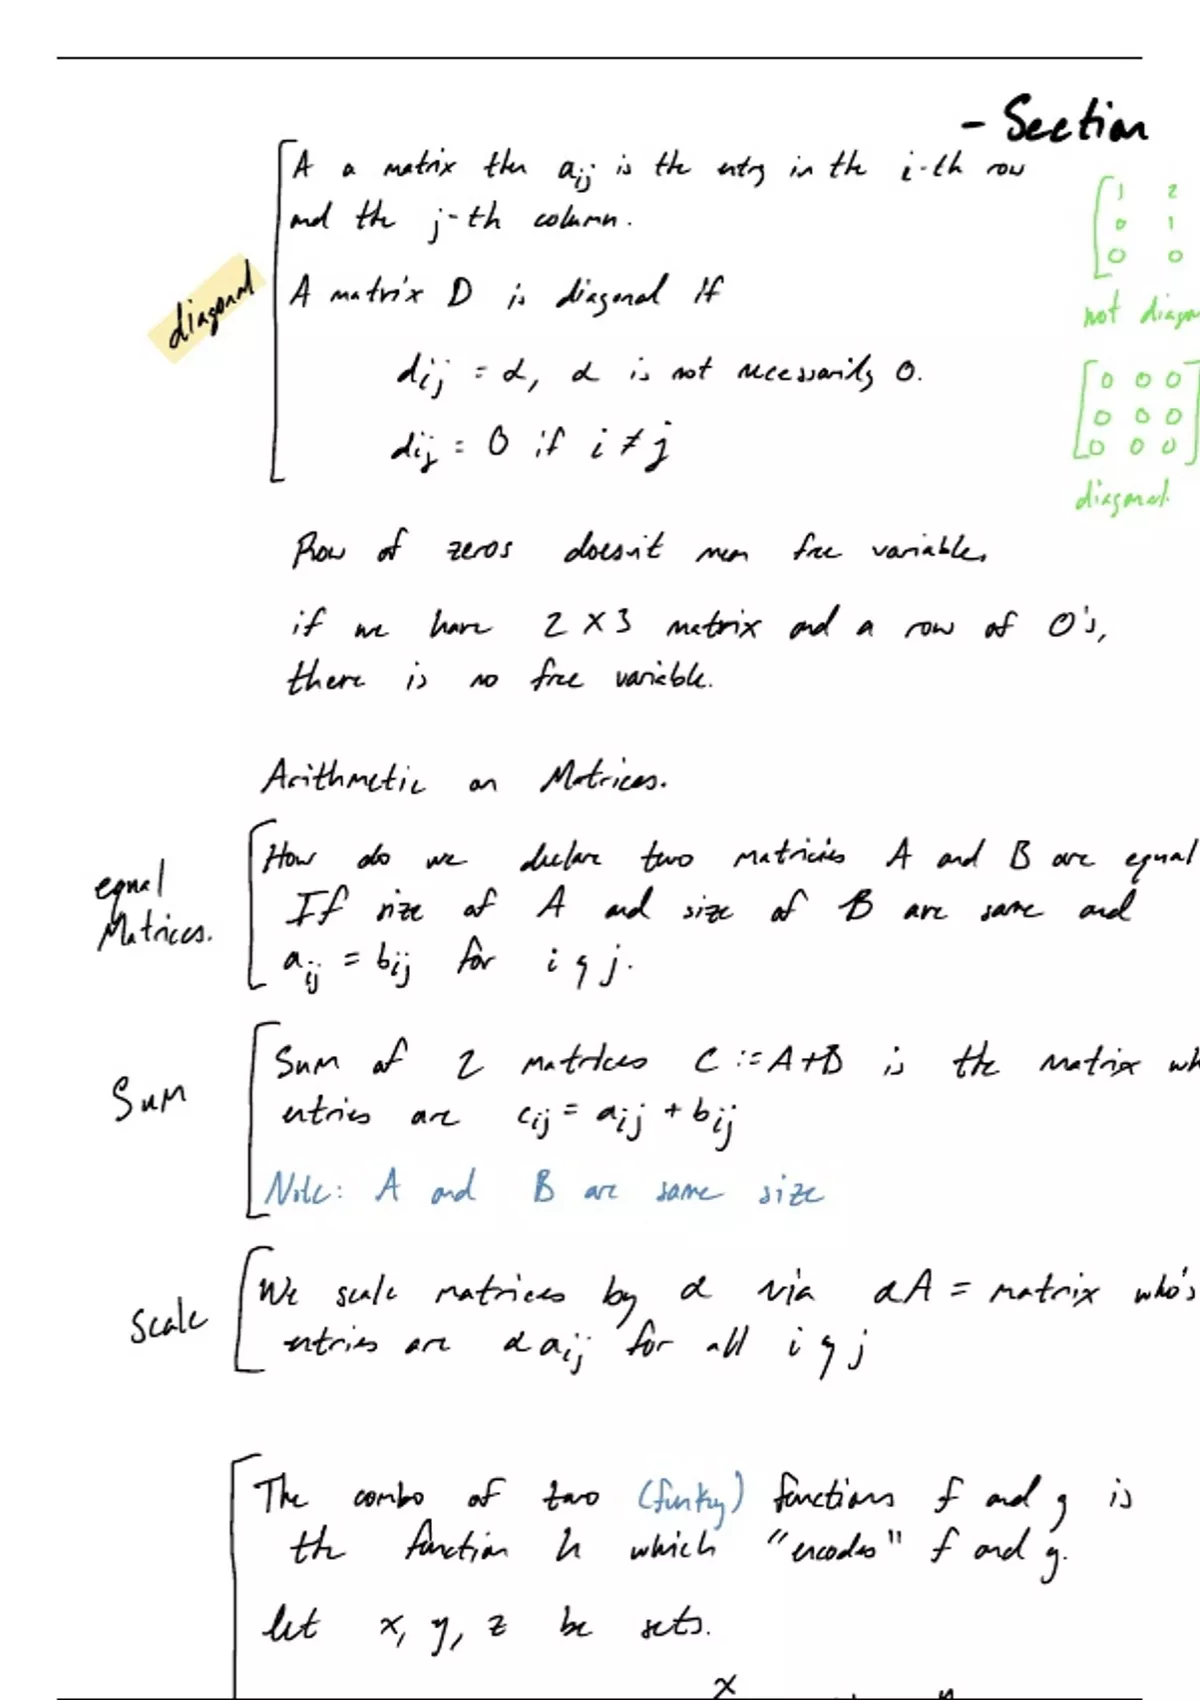 - Section
A a matrix then aij is the entry in the i-th row
and the j-th column.
diagonal
A matrix D is diagonal if
dij = α, α is not necessarily 0.
dij = 0 if i ≠ j
1 2
0 1
0 0
not diagon
0 0 0
0 0 0
0 0 0
diagonal.
Row of zeros doesn't mean free variable,
if we have 2 x 3 matrix and a row of 0's,
there is no free variable.
Arithmetic on Matrices.
equal
Matrices.
How do we declare two matricies A and B are equal
If size of A and size of B are same and
aij = bij for i & j.
Sum
Sum of 2 matrices C := A+B is the matrix wh
entries are cij = aij + bij
Note: A and B are same size
Scale
We scale matrices by α via αA = matrix who's
entries are αaij for all i & j
The combo of two (funky) functions f and g is
the function h which "encodes" f and g.
let x, y, z be sets.
x